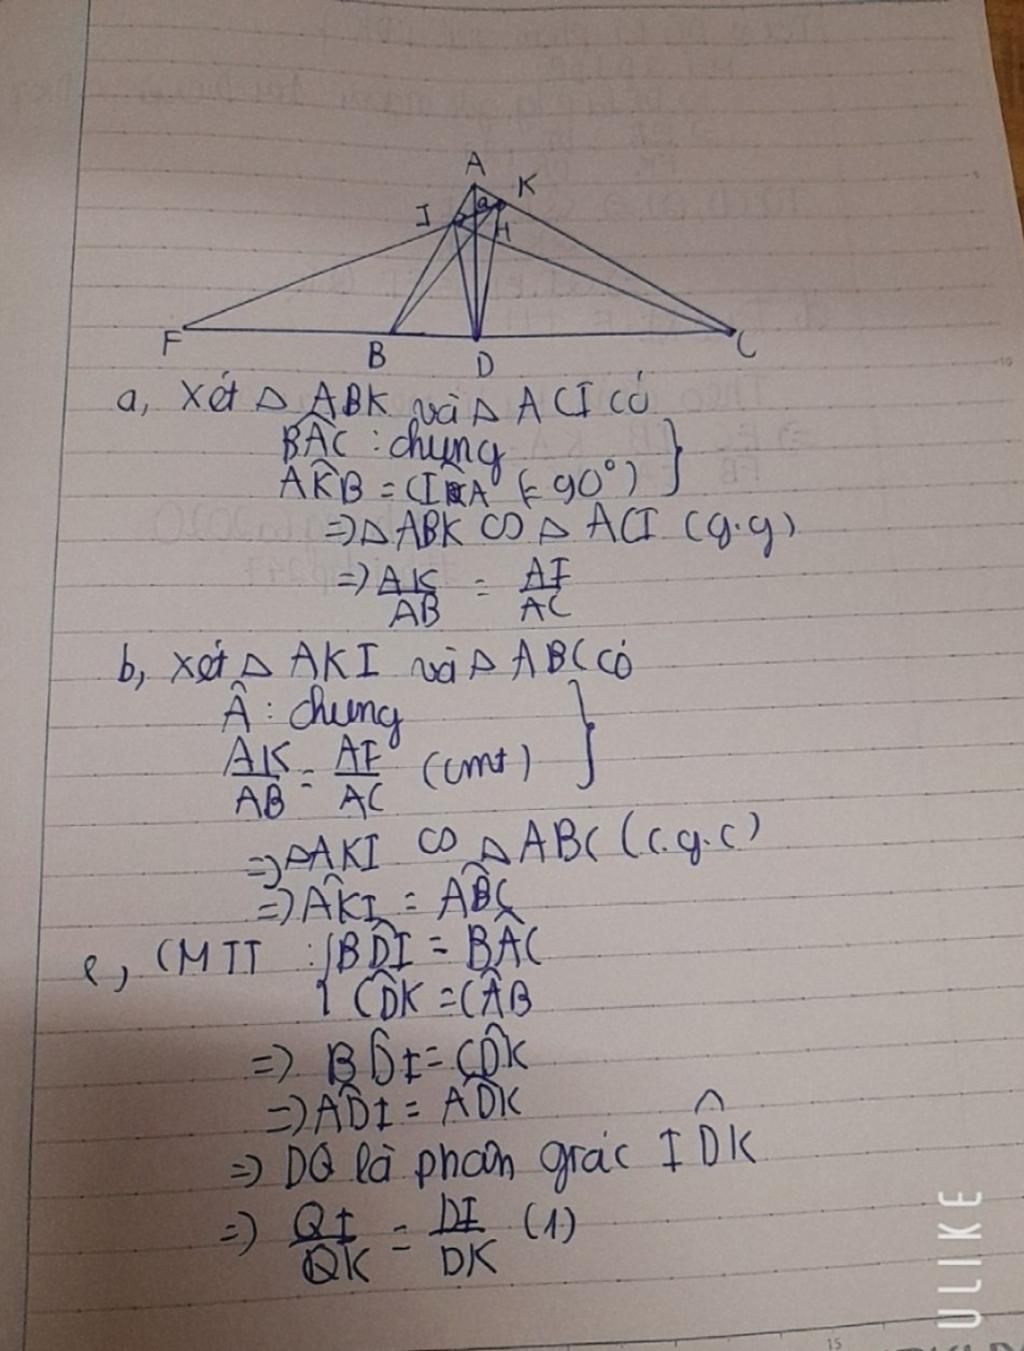 A
K
I
Q
H
F
B
D
C
a, Xét △ ABK và △ ACI có
BÂC : chung
AK̂B = CÎA (= 90°)
=> △ ABK ∽ △ ACI (g.g)
=> AK/AB = AI/AC
b, xét △ AKI và △ ABC có
Â : chung
AK/AB = AI/AC (cmt)
=> △AKI ∽ △ ABC (c.g.c)
=> AK̂I = AB̂C
c, CMTT : { BD̂I = BÂC
CD̂K = CÂB
=> BD̂I = CD̂K
=> AD̂I = AD̂K
=> DQ là phân giác ID̂K
=> QI/QK = DI/DK (1)
ULIKE
15